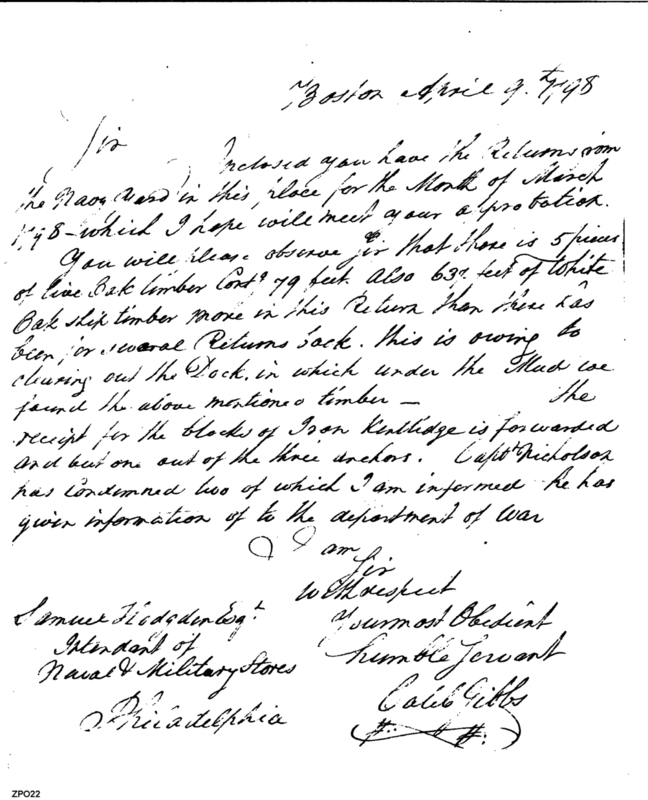 Boston April 9th 1798
Sir
Inclosed you have the Returns from
the Navy Yard in this place for the Month of March
1798 - which I hope will meet your aprobation.
You will please observe Sir that there is 5 pieces
of live Oak timber Contg 79 feet. also 637 feet of White
Oak ship timber more in this Return than there has
been for several Returns back. this is owing to
clearing out the Dock, in which under the Mud we
found the above mentioned timber — The
receipt for the blocks of Iron Kentlidge is forwarded
and but one out of the three anchors. Captn Nicholson
has Condemned two of which I am informed he has
given information of to the department of War
I am
Sir
with respect
Your most Obedient
humble Servant
Caleb Gibbs
Samuel Hodgdon Esqr
Intendant of
Naval & Military Stores
Philadelphia
ZPO22